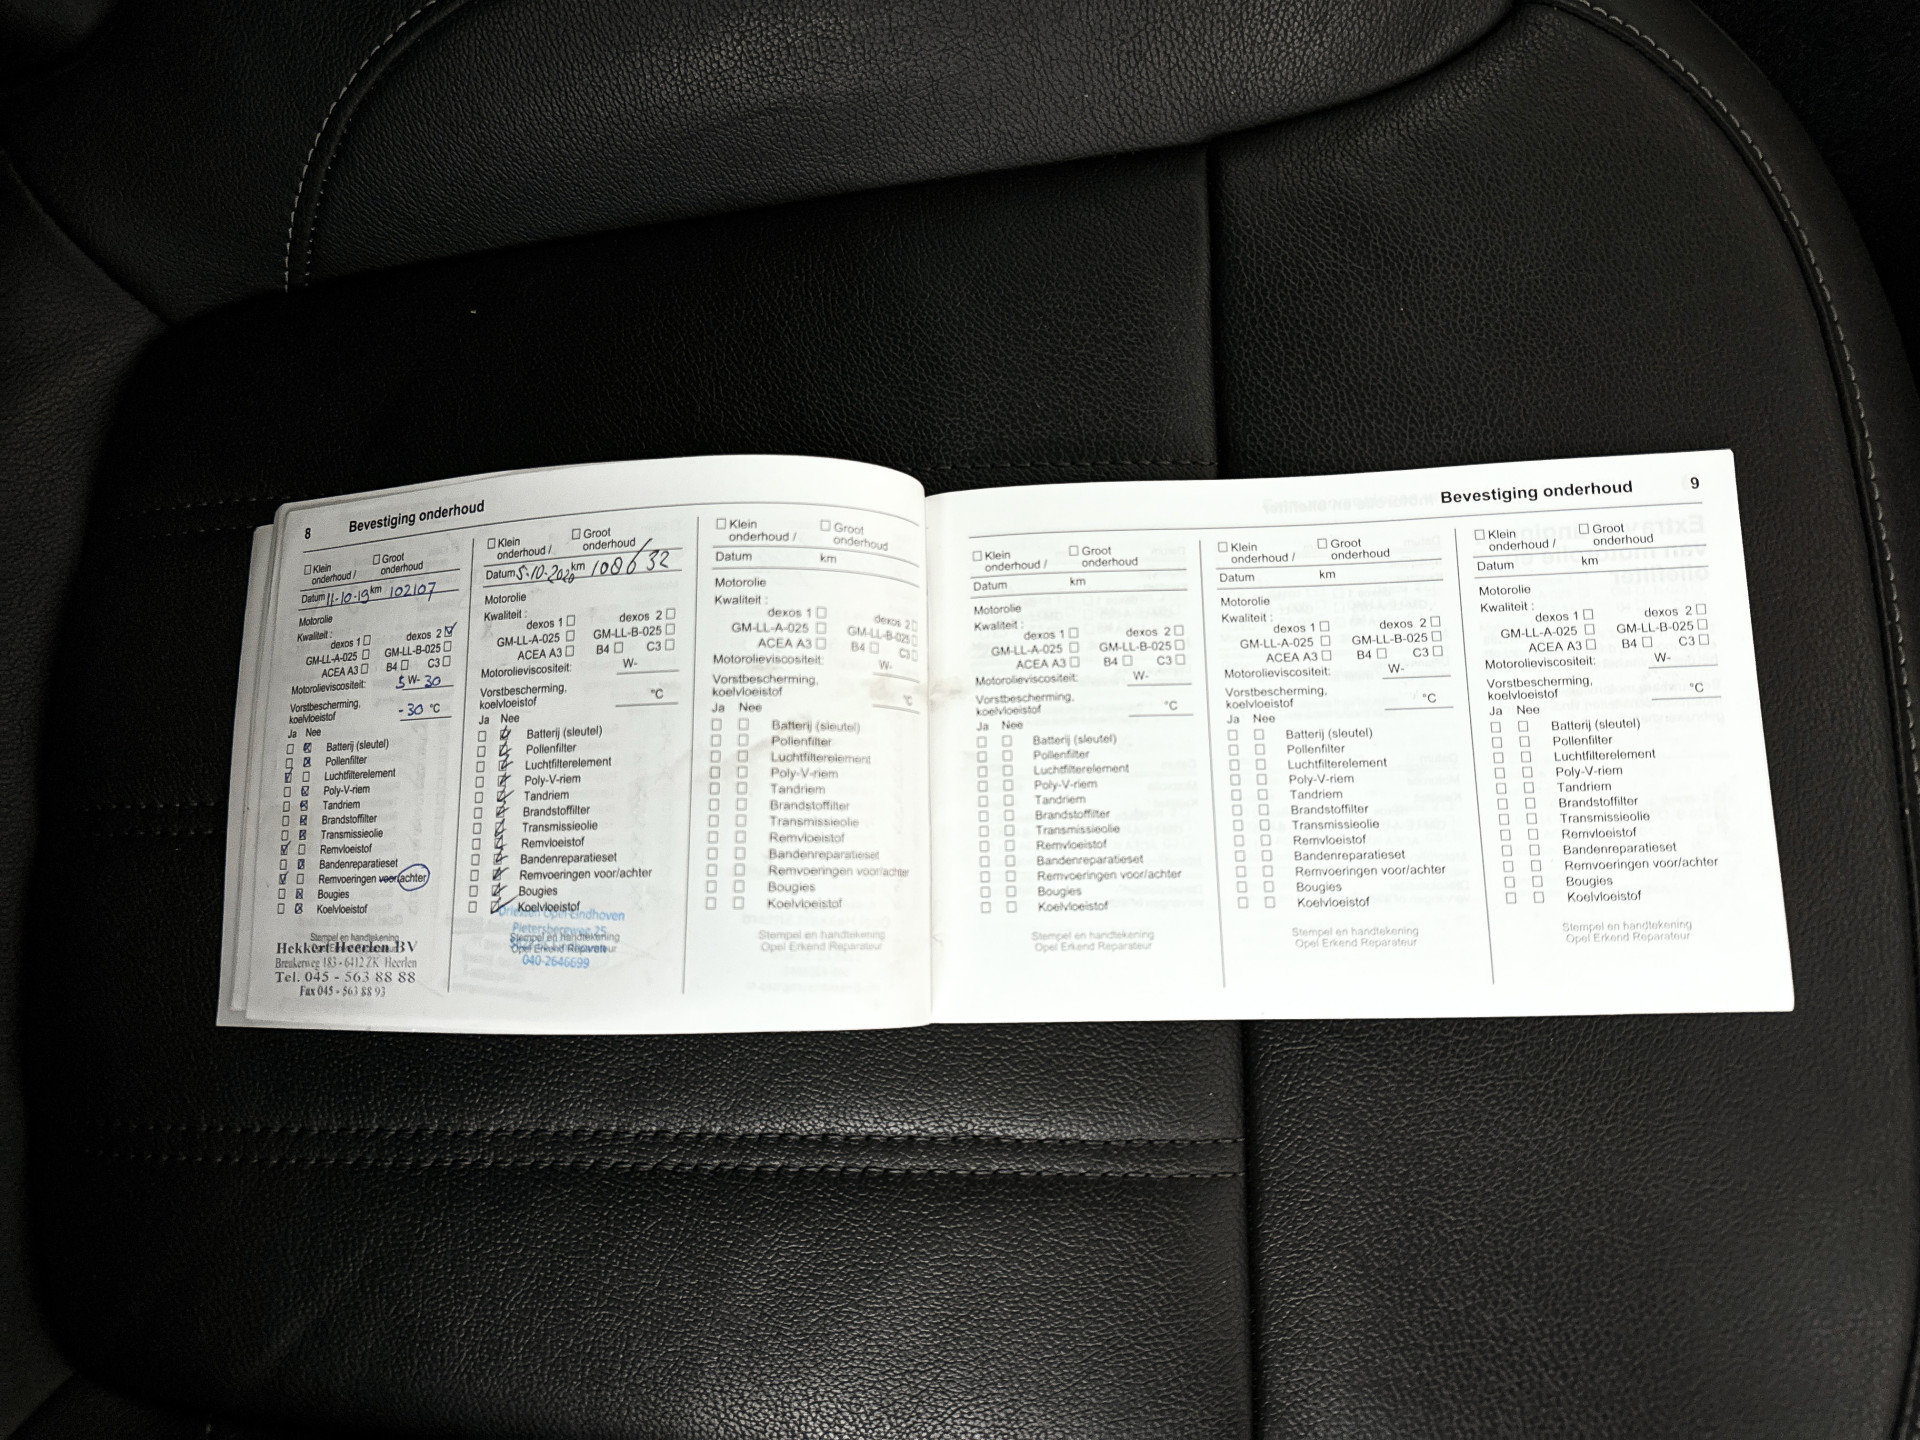 8 Bevestiging onderhoud
☐ Klein onderhoud / ☐ Groot onderhoud
Datum 11-10-19 km 102107
Motorolie
Kwaliteit :
dexos 1 ☐ dexos 2 ☑
GM-LL-A-025 ☐ GM-LL-B-025 ☐
ACEA A3 ☐ B4 ☐ C3 ☐
Motorolieviscositeit: 5 W- 30
Vorstbescherming,
koelvloeistof -30 °C
Ja Nee
☐ ☒ Batterij (sleutel)
☐ ☒ Pollenfilter
☑ ☐ Luchtfilterelement
☐ ☒ Poly-V-riem
☐ ☒ Tandriem
☐ ☒ Brandstoffilter
☐ ☒ Transmissieolie
☑ ☐ Remvloeistof
☐ ☒ Bandenreparatieset
☑ ☐ Remvoeringen voor/achter
☐ ☒ Bougies
☐ ☒ Koelvloeistof
Stempel en handtekening
Hekkert Heerlen BV
Breukerweg 183 - 6412 ZK Heerlen
Tel. 045 - 563 88 88
Fax 045 - 563 88 93
☐ Klein onderhoud / ☐ Groot onderhoud
Datum 5-10-2020 km 108632
Motorolie
Kwaliteit :
dexos 1 ☐ dexos 2 ☐
GM-LL-A-025 ☐ GM-LL-B-025 ☐
ACEA A3 ☐ B4 ☐ C3 ☐
Motorolieviscositeit: W-
Vorstbescherming,
koelvloeistof °C
Ja Nee
☐ ☑ Batterij (sleutel)
☐ ☑ Pollenfilter
☐ ☑ Luchtfilterelement
☐ ☑ Poly-V-riem
☐ ☑ Tandriem
☐ ☑ Brandstoffilter
☐ ☑ Transmissieolie
☐ ☑ Remvloeistof
☐ ☑ Bandenreparatieset
☐ ☑ Remvoeringen voor/achter
☐ ☑ Bougies
☐ ☑ Koelvloeistof
Opel Eindhoven
25
Stempel en handtekening
Opel Erkend Reparateur
040-2646699
☐ Klein onderhoud / ☐ Groot onderhoud
Datum km
Motorolie
Kwaliteit :
dexos 1 ☐ dexos 2 ☐
GM-LL-A-025 ☐ GM-LL-B-025 ☐
ACEA A3 ☐ B4 ☐ C3 ☐
Motorolieviscositeit: W-
Vorstbescherming,
koelvloeistof °C
Ja Nee
☐ ☐ Batterij (sleutel)
☐ ☐ Pollenfilter
☐ ☐ Luchtfilterelement
☐ ☐ Poly-V-riem
☐ ☐ Tandriem
☐ ☐ Brandstoffilter
☐ ☐ Transmissieolie
☐ ☐ Remvloeistof
☐ ☐ Bandenreparatieset
☐ ☐ Remvoeringen voor/achter
☐ ☐ Bougies
☐ ☐ Koelvloeistof
Stempel en handtekening
Opel Erkend Reparateur
Bevestiging onderhoud 9
☐ Klein onderhoud / ☐ Groot onderhoud
Datum km
Motorolie
Kwaliteit :
dexos 1 ☐ dexos 2 ☐
GM-LL-A-025 ☐ GM-LL-B-025 ☐
ACEA A3 ☐ B4 ☐ C3 ☐
Motorolieviscositeit: W-
Vorstbescherming,
koelvloeistof °C
Ja Nee
☐ ☐ Batterij (sleutel)
☐ ☐ Pollenfilter
☐ ☐ Luchtfilterelement
☐ ☐ Poly-V-riem
☐ ☐ Tandriem
☐ ☐ Brandstoffilter
☐ ☐ Transmissieolie
☐ ☐ Remvloeistof
☐ ☐ Bandenreparatieset
☐ ☐ Remvoeringen voor/achter
☐ ☐ Bougies
☐ ☐ Koelvloeistof
Stempel en handtekening
Opel Erkend Reparateur
☐ Klein onderhoud / ☐ Groot onderhoud
Datum km
Motorolie
Kwaliteit :
dexos 1 ☐ dexos 2 ☐
GM-LL-A-025 ☐ GM-LL-B-025 ☐
ACEA A3 ☐ B4 ☐ C3 ☐
Motorolieviscositeit: W-
Vorstbescherming,
koelvloeistof °C
Ja Nee
☐ ☐ Batterij (sleutel)
☐ ☐ Pollenfilter
☐ ☐ Luchtfilterelement
☐ ☐ Poly-V-riem
☐ ☐ Tandriem
☐ ☐ Brandstoffilter
☐ ☐ Transmissieolie
☐ ☐ Remvloeistof
☐ ☐ Bandenreparatieset
☐ ☐ Remvoeringen voor/achter
☐ ☐ Bougies
☐ ☐ Koelvloeistof
Stempel en handtekening
Opel Erkend Reparateur
☐ Klein onderhoud / ☐ Groot onderhoud
Datum km
Motorolie
Kwaliteit :
dexos 1 ☐ dexos 2 ☐
GM-LL-A-025 ☐ GM-LL-B-025 ☐
ACEA A3 ☐ B4 ☐ C3 ☐
Motorolieviscositeit: W-
Vorstbescherming,
koelvloeistof °C
Ja Nee
☐ ☐ Batterij (sleutel)
☐ ☐ Pollenfilter
☐ ☐ Luchtfilterelement
☐ ☐ Poly-V-riem
☐ ☐ Tandriem
☐ ☐ Brandstoffilter
☐ ☐ Transmissieolie
☐ ☐ Remvloeistof
☐ ☐ Bandenreparatieset
☐ ☐ Remvoeringen voor/achter
☐ ☐ Bougies
☐ ☐ Koelvloeistof
Stempel en handtekening
Opel Erkend Reparateur